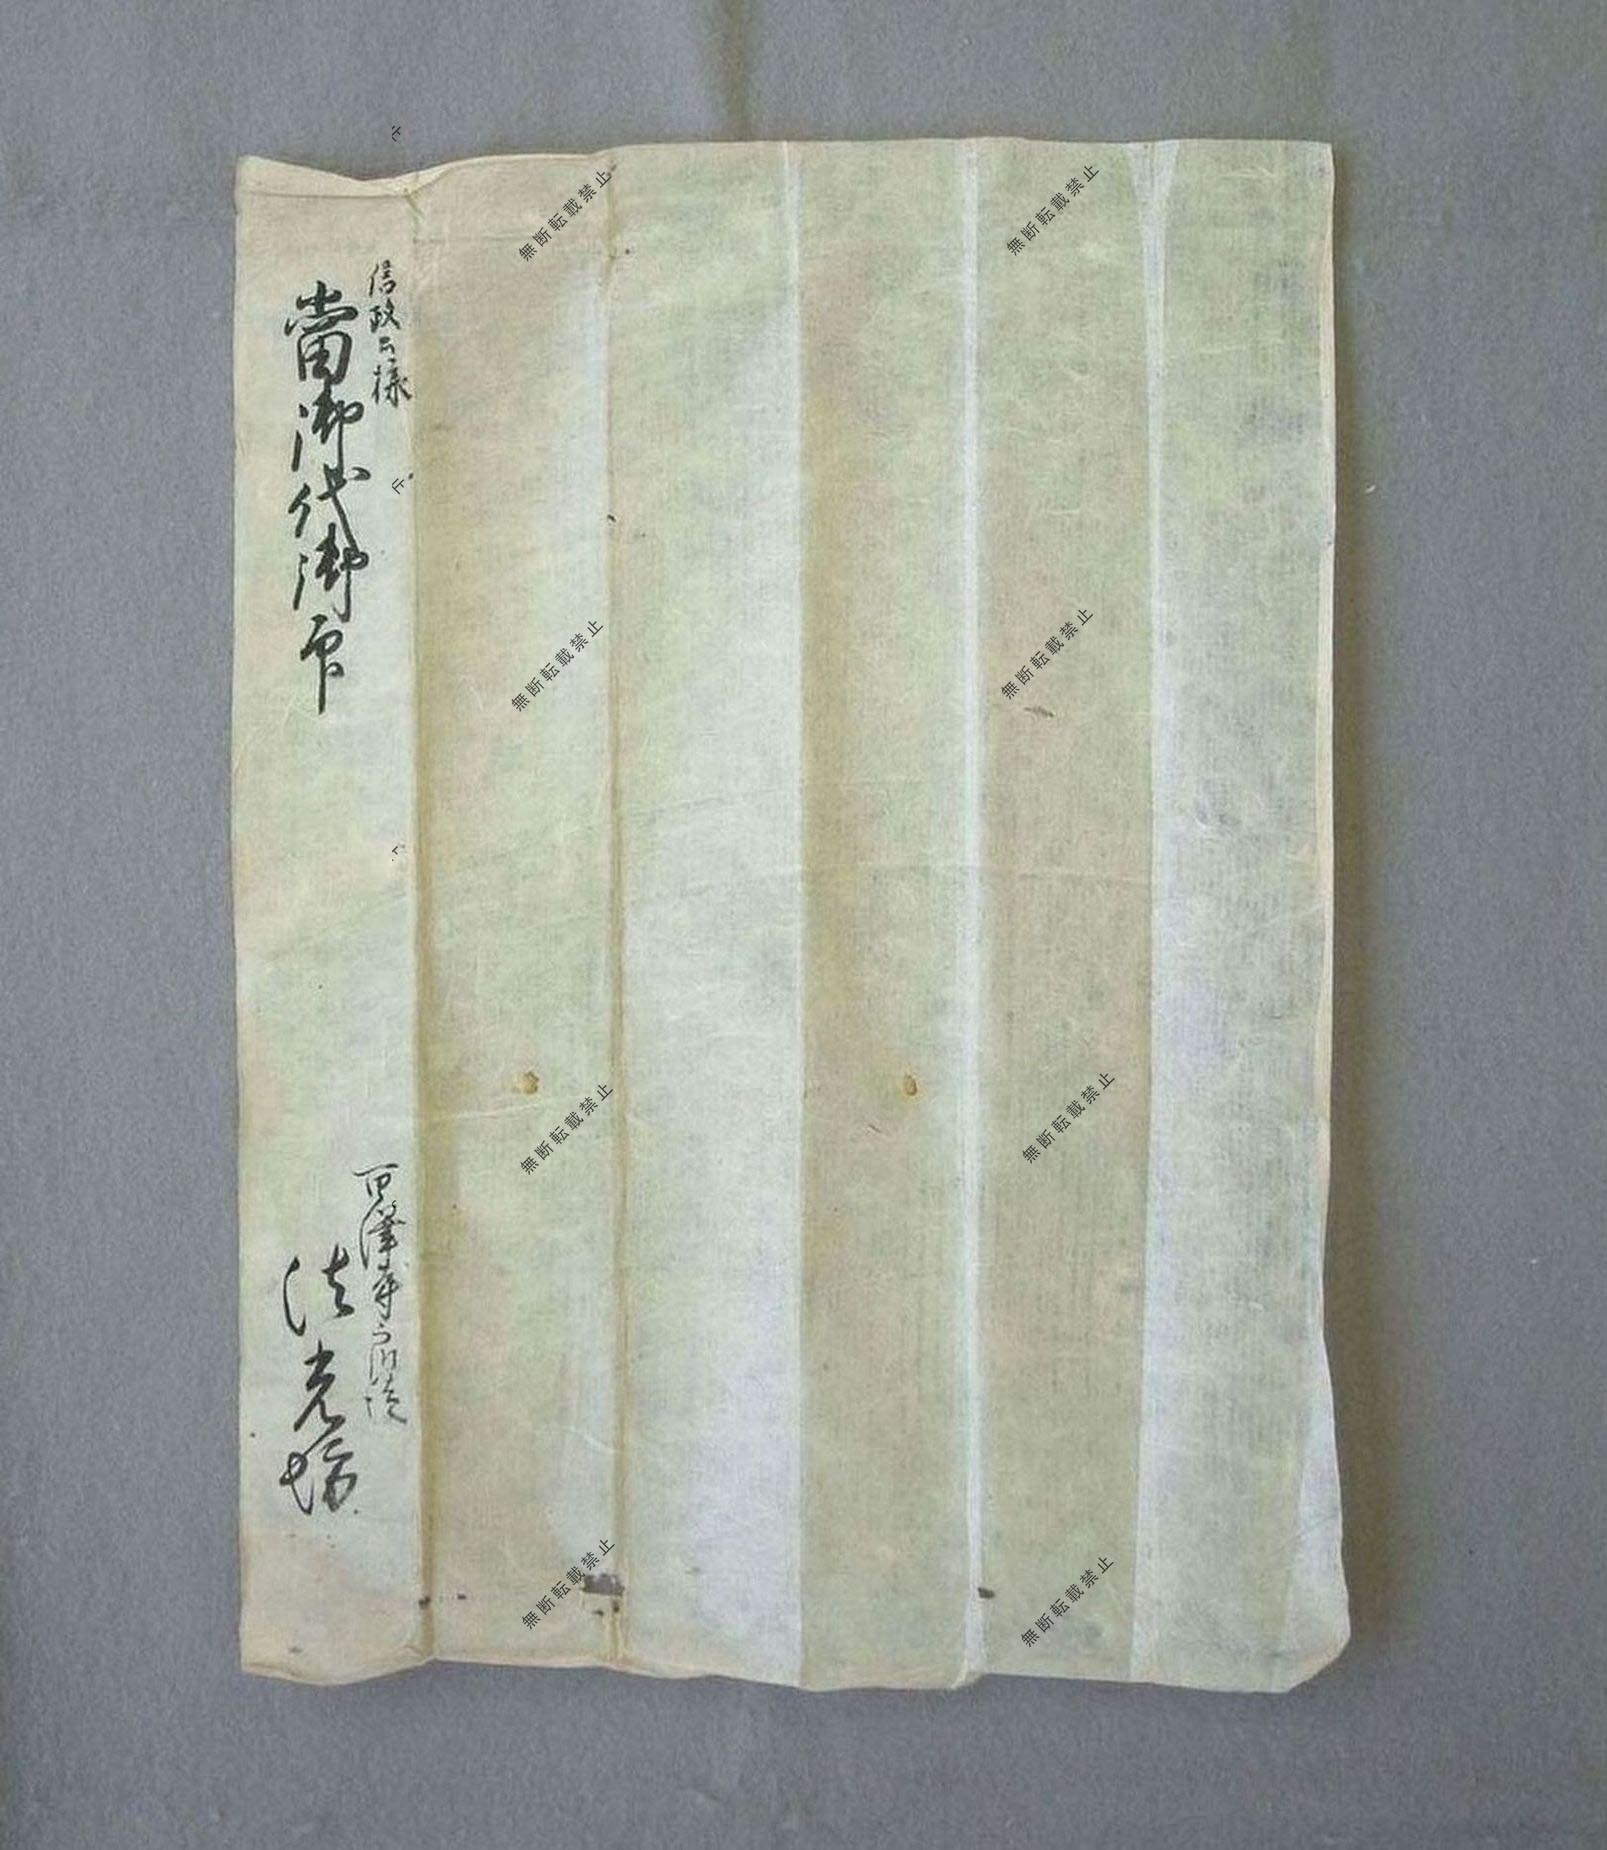 信政公様
當御代御印
百澤寺
法光坊
無断転載禁止
無断転載禁止
無断転載禁止
無断転載禁止
無断転載禁止
無断転載禁止
無断転載禁止
無断転載禁止